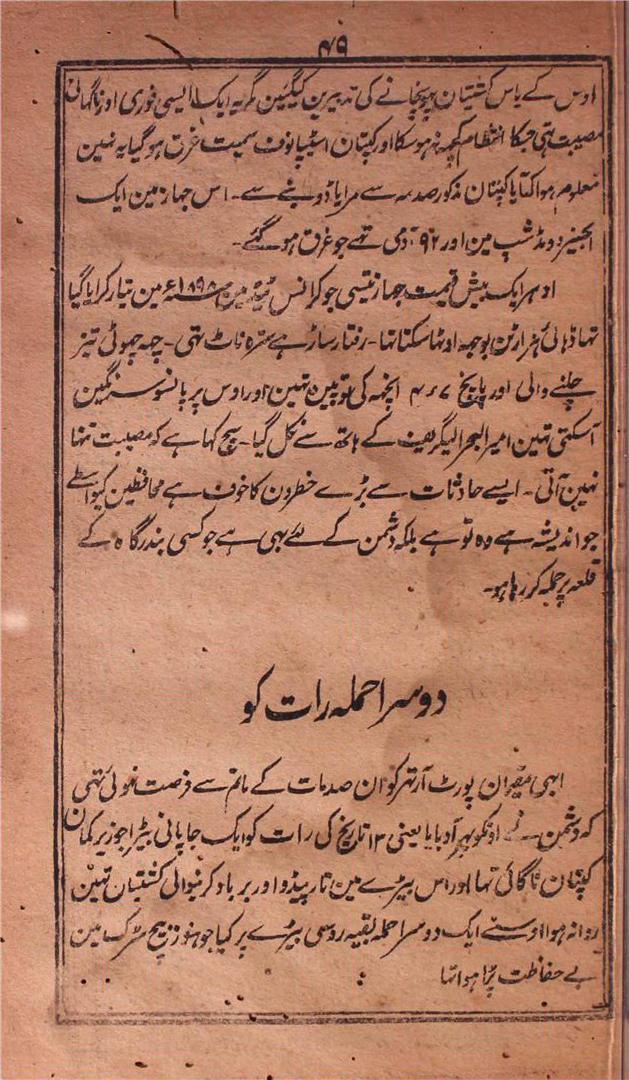 ۴۹
اوس کے پاس کشتیان پہونچانے کی تدبیرین کیگئین مگر یہ ایک ایسی فوری اور ناگہانی
مصیبت تہی جسکا انتظام کچہہ نہوسکا اور کپتان اسٹیپانوف سمیت غرق ہوگیا یہ نہین
معلوم ہوا کہ آیا کپتان مذکور صدمہ سے مرا یا ڈوبنے سے۔ اس جہاز مین ایک
انجنیر دو مڈشپ مین اور ۹۲ آدمی تہے جو غرق ہو گئے۔
ادہر ایک بیش قیمت جہاز نتیسی جو کرانس مین سنہ ۱۸۹۸ء مین تیار کرایا گیا
تہا ڈہائی ہزار ٹن بوجہ اوٹہا سکتا تہا۔ رفتار ساڑہے سترہ ناٹ تہی۔ چہہ چہوٹی تیز
چلنے والی اور پانچ ۷ء۴ انچہہ کی توپین تہین اور اوس پر پانسو سرنگین
آسکتی تہین امیر البحر الیگزیف کے ہاتہہ سے نکل گیا۔ سچ کہا ہے کہ مصیبت تنہا
نہین آتی۔ ایسے حادثات سے بڑے خطرون کا خوف ہے محافظین کیواسطے
جو اندیشہ ہے وہ تو ہے بلکہ دشمن کے لئے بہی ہے جو کسی بندرگاہ کے
قلعہ پر حملہ کر رہا ہو۔
دوسرا حملہ رات کو
ابہی مقیمان پورٹ آرتہر کو ان صدمات کے ماتم سے فرصت نہوئی تہی
کہ دشمن نے اونکو پہر آ دبایا یعنی ۱۳ تاریخ کی رات کو ایک جاپانی بیڑا جو زیر کمان
کپتان ناگائی تہا اور اس بیڑے مین تارپیڈو اور برباد کرنیوالی کشتیان تہین
روانہ ہوا اوسنے ایک دوسرا حملہ بقیہ روسی بیڑے پر کیا جو ہنوز بیچ سڑک مین
بے حفاظت پڑا ہوا تہا